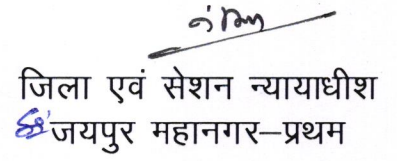 जिला एवं सेशन न्यायाधीश
जयपुर महानगर–प्रथम